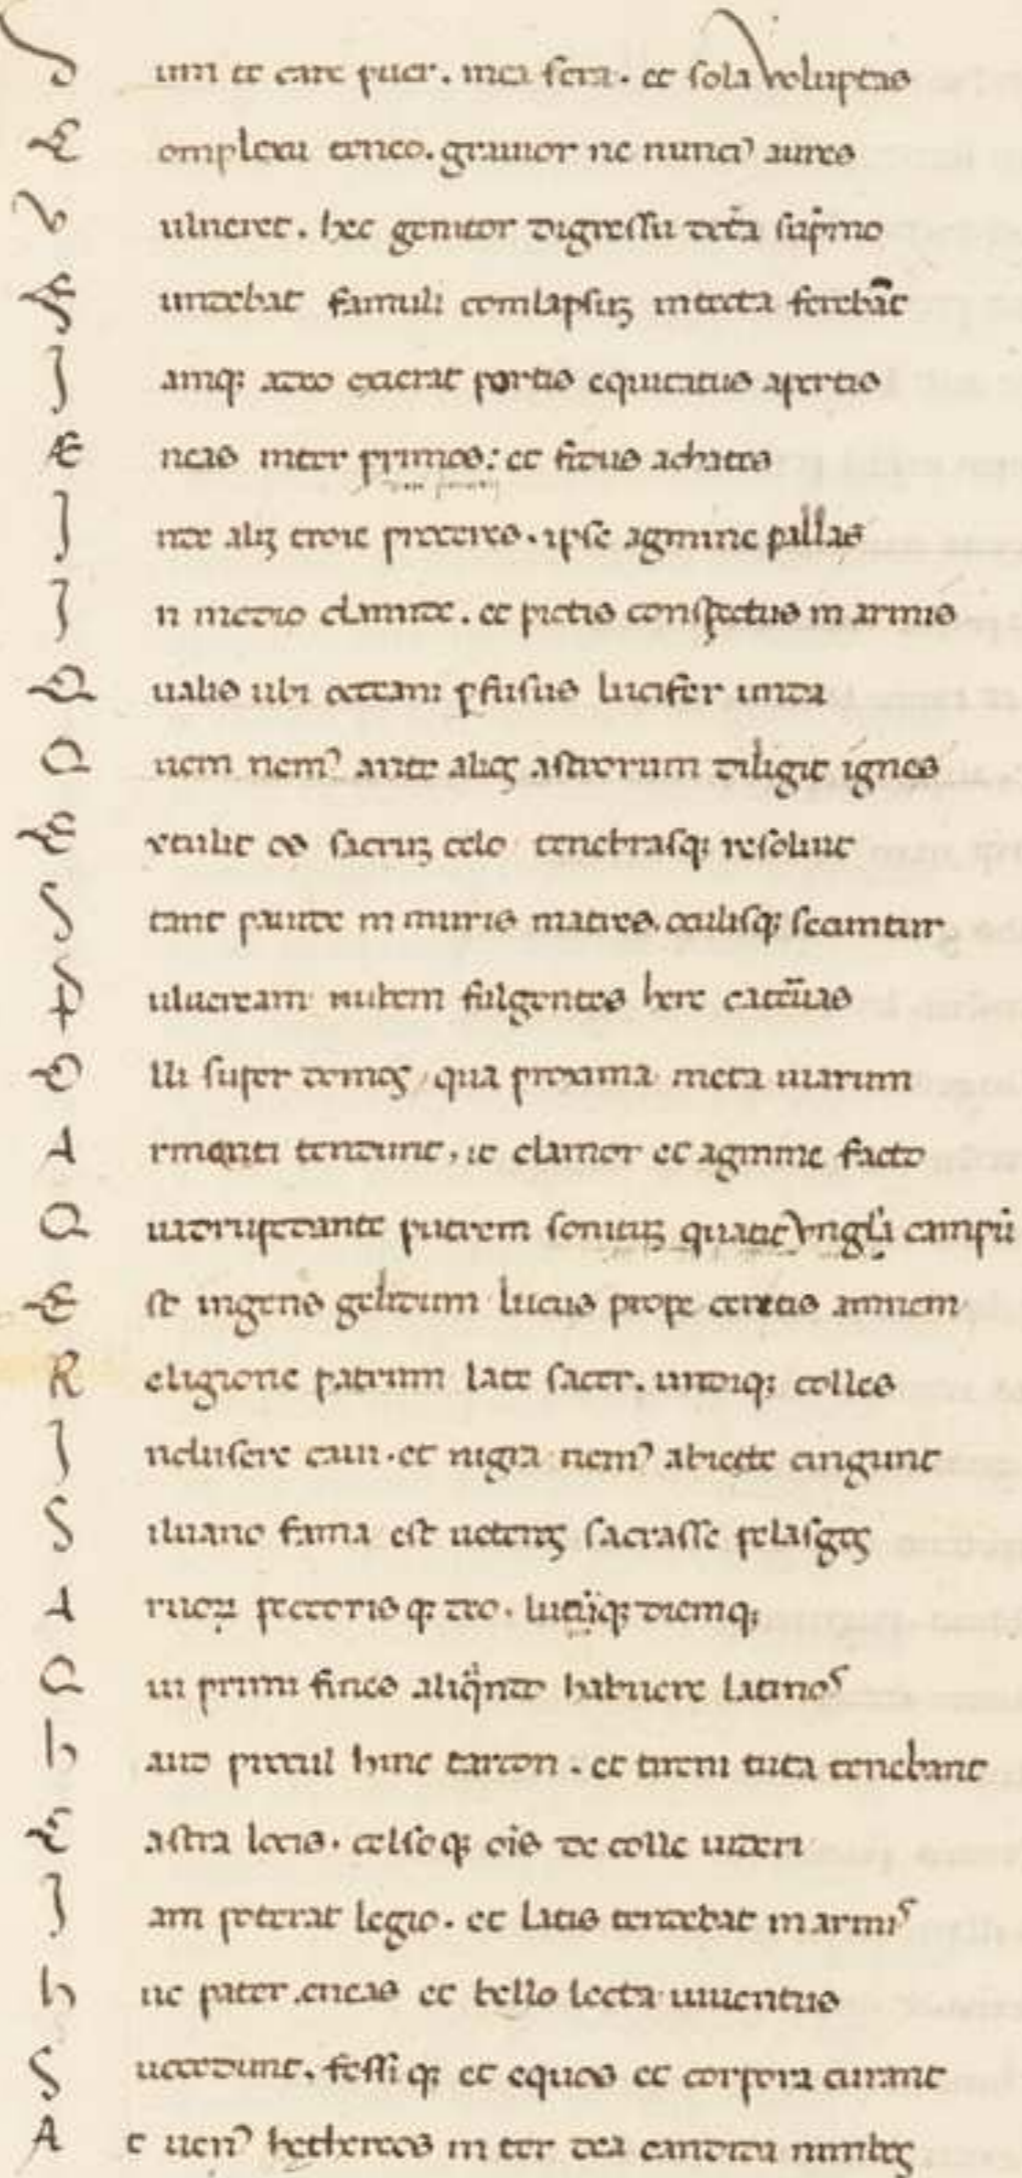 Dum te care puer. mea sera. et sola voluptas
Complexu teneo. grauior ne nunci⁹ aures
Vulneret. hec genitor digressu dicta sup̄mo
Fundebat famuli comlapsuꝫ in tecta ferebāt
Jamqꝫ adeo exierat portis equitatus apertis
Æneas inter primos: et fidus achates
Inde alij troie proceres. ipse agmine pallas
In medio clamide. et pictis conspectus in armis
Qualis ubi occeani ꝑfusus lucifer unda
Quem uen⁹ ante alios astrorum diligit ignes
Extulit os sacruꝫ celo tenebrasqꝫ resoluit
Stant pauide in muris matres. oculisqꝫ secuntur
Pulueream nubem fulgentes here cateruas
Olli super dumos qua proxima meta uiarum
Armati tendunt, it clamor et agmine facto
Quadrupedante putrem sonituꝫ quatit vngula campū
Est ingens gelidum lucus prope ceretis amnem
Religione patrum late sacer. undiqꝫ colles
Inclusere caui. et nigra nem⁹ abiete cingunt
Siluano fama est ueteres sacrasse pelasgos
Aruoꝝ pecorisqꝫ deo. lucūqꝫ diemqꝫ
Qui primi fines aliqn̄do habuere latinos
haud procul hinc tarcon. et tireni tuta tenebant
Castra locis. celsoqꝫ oīs de colle uideri
Jam poterat legio. et latis tendebat in armis
huc pater eneas et bello lecta iuuentus
Succedunt. fessiqꝫ et equos et corpora curant
At uen⁹ hethereos inter dea candida nimbos